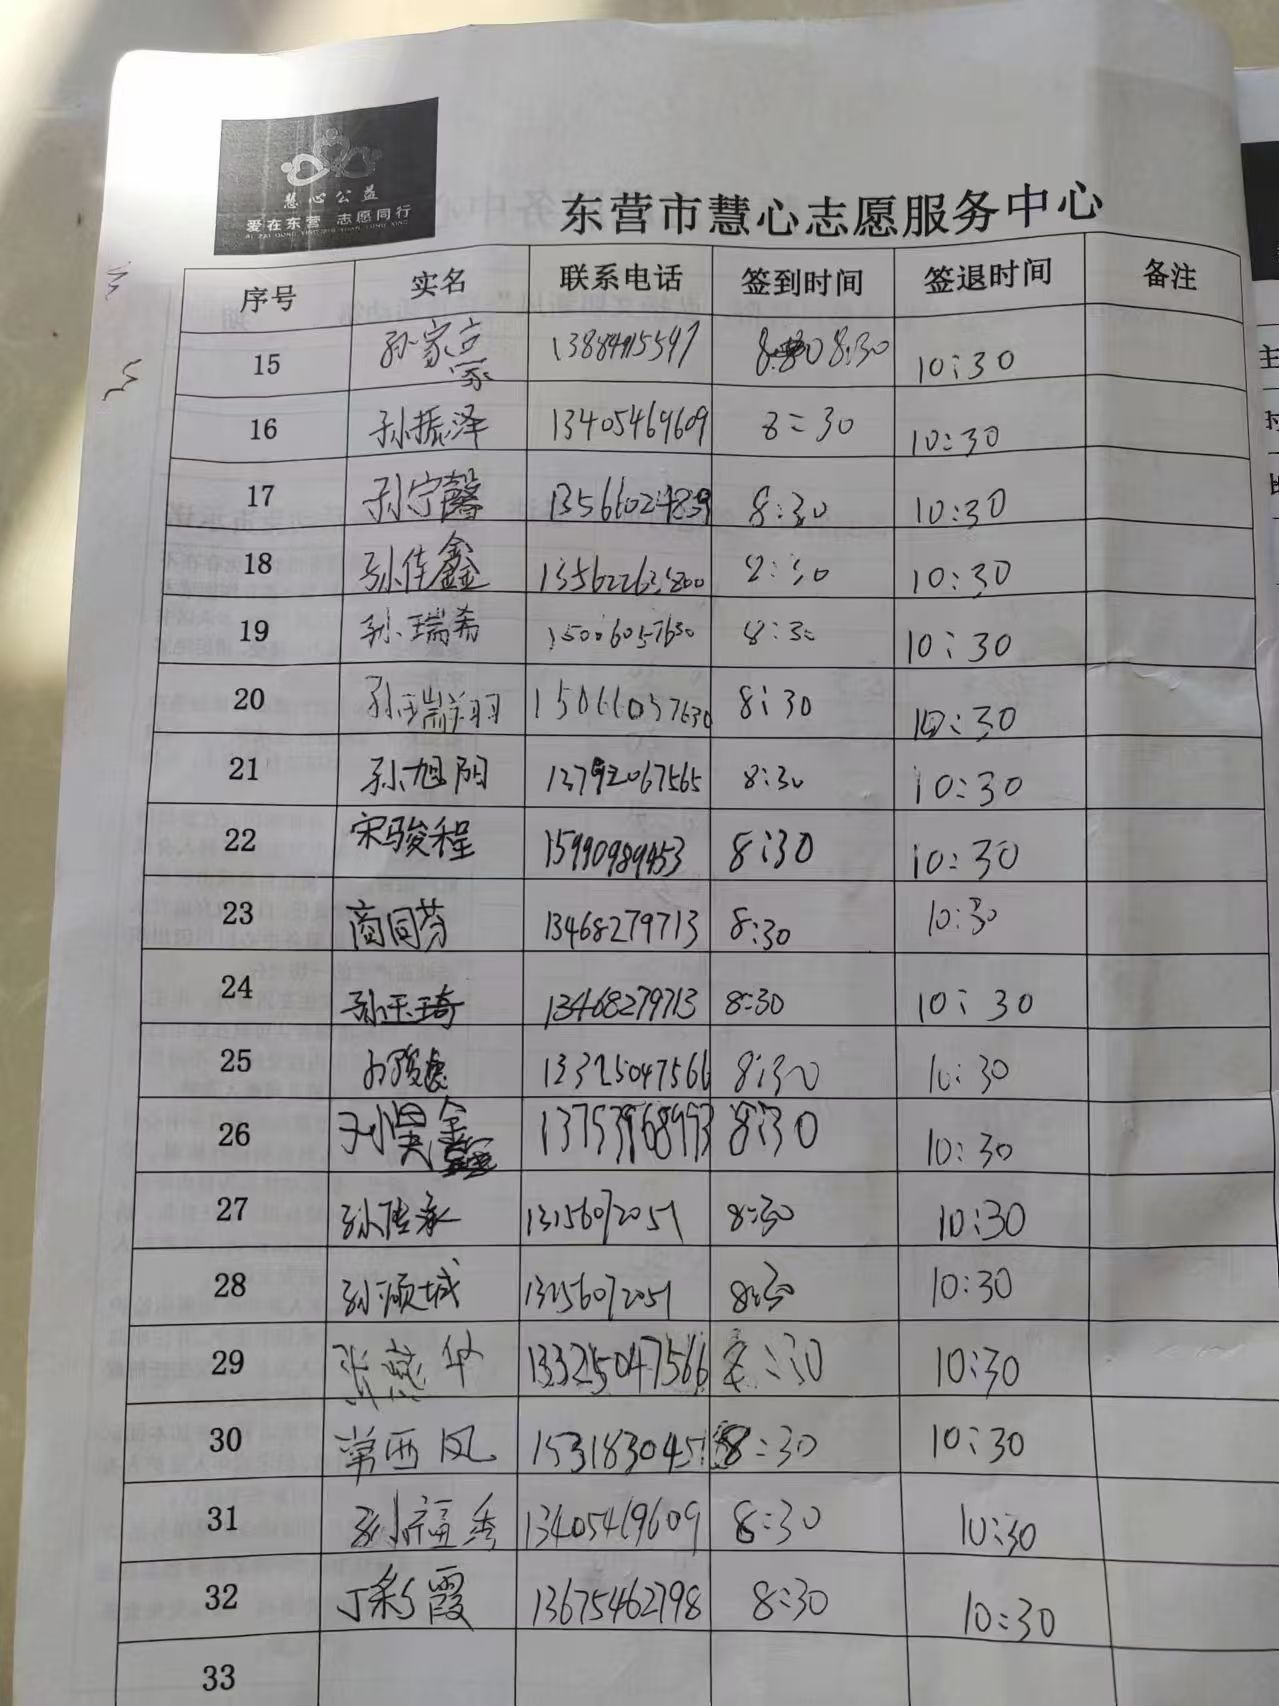 慧心公益
爱在东营 志愿同行
东营市慧心志愿服务中心
序号 实名 联系电话 签到时间 签退时间 备注
15 孙家 8:30 10:30
16 孙振泽 13405469609 8:30 10:30
17 孙宁馨 13566024839 8:30 10:30
18 孙佳鑫 8:30 10:30
19 孙瑞希 15006057630 8:30 10:30
20 孙瑞翔 15066057630 8:30 10:30
21 孙旭阳 13792067565 8:30 10:30
22 宋骏程 15990989453 8:30 10:30
23 商同芬 13468279713 8:30 10:30
24 孙玉琦 13468279713 8:30 10:30
25 13325047566 8:30 10:30
26 孙昊鑫 8:30 10:30
27 孙传承 8:30 10:30
28 孙顺城 8:30 10:30
29 张燕华 13325047566 8:30 10:30
30 常西风 8:30 10:30
31 孙福秀 13405469609 8:30 10:30
32 丁彩霞 13675462798 8:30 10:30
33